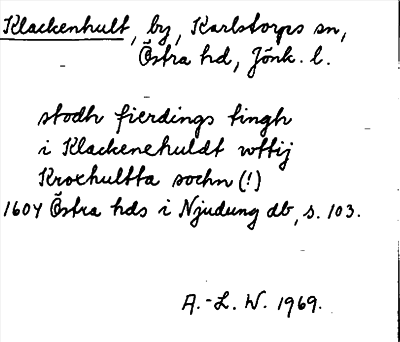 Klackenhult, by, Karlstorps sn,
Östra hd, Jönk. l.
stodh fierdings tingh
i Klackenehuldt wttij
Krochultta sochn (!)
1604 Östra hds i Njudung db, s. 103.
A.-L. W. 1969.